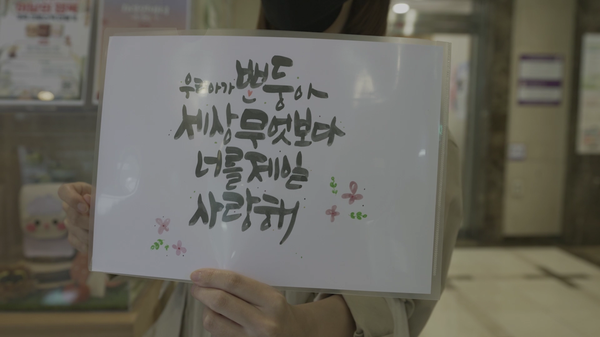 우리아가 뽄둥아
세상무엇보다
너를제일
사랑해